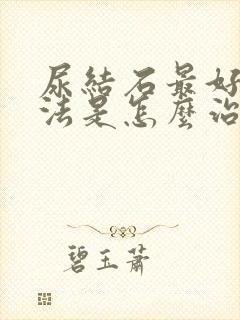 尿結石最好
法是怎麼治
碧玉蕭